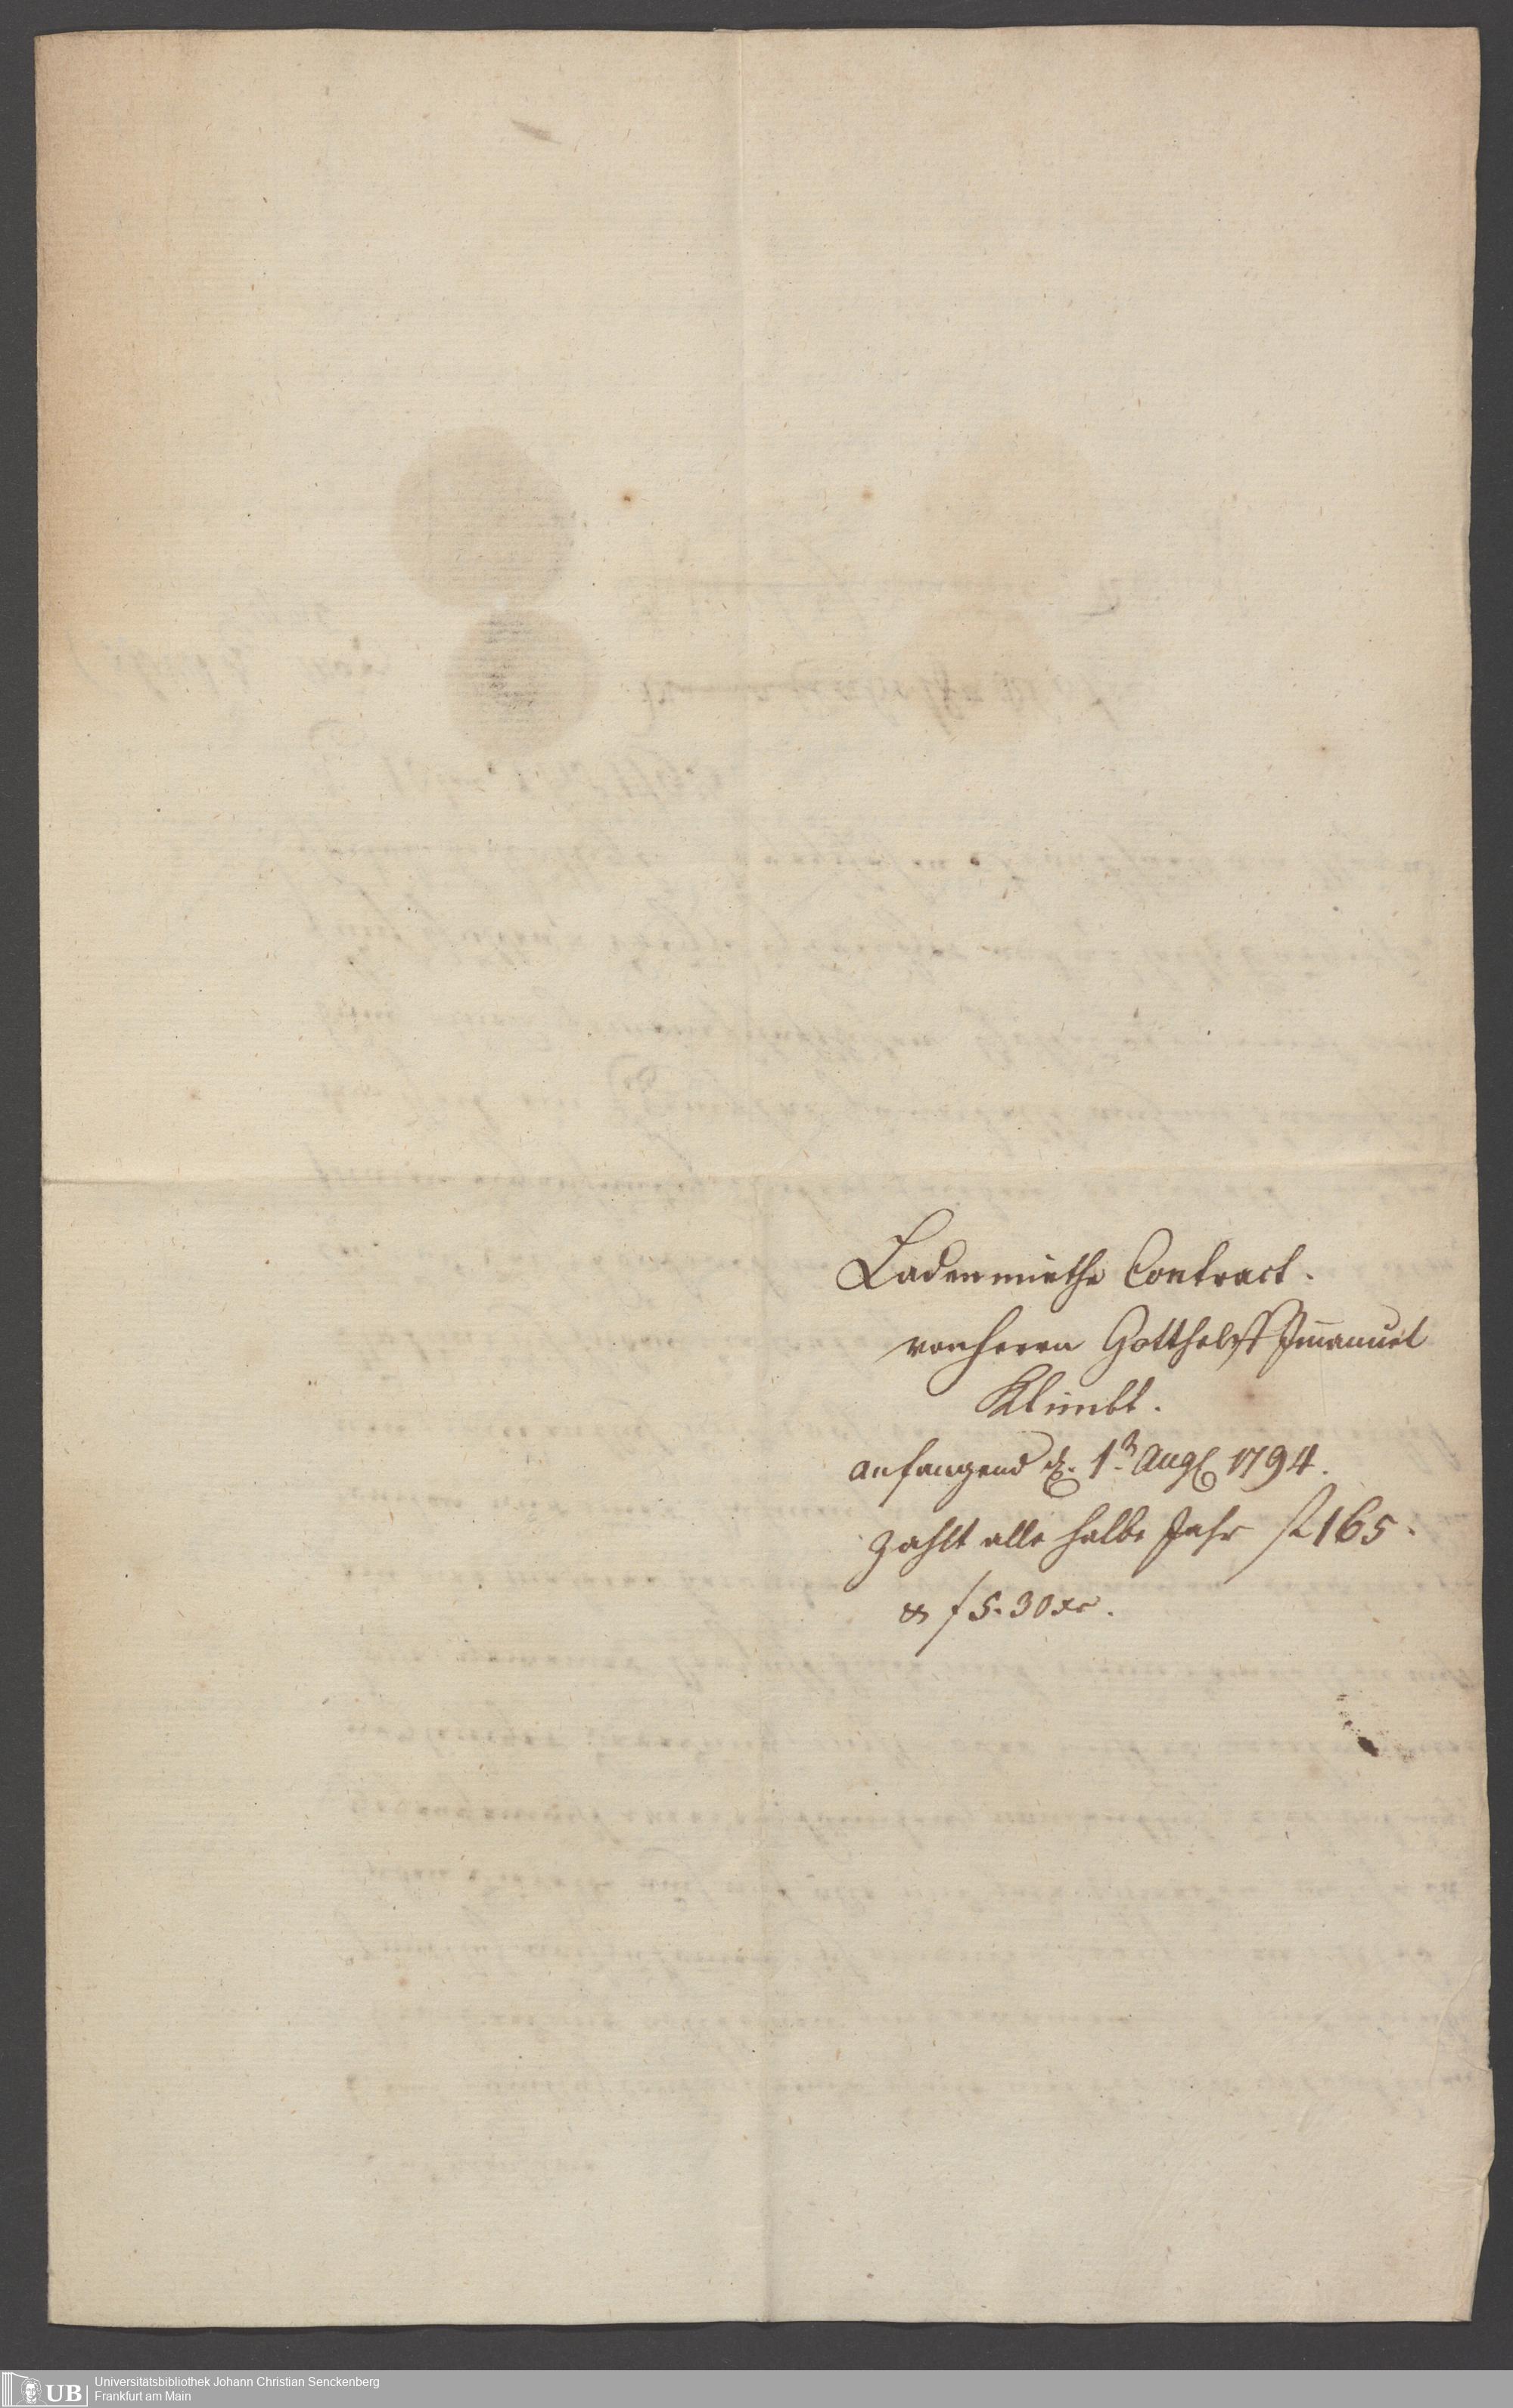 Ladenmiethe Contract.
von Herrn Gotthelff Imanuel
Klimbt.
anfangend d. 1tn Augs 1794.
zahlt alle halbe Jahr f 165.
& f 5. 30 xr.
UB
Universitätsbibliothek Johann Christian Senckenberg
Frankfurt am Main